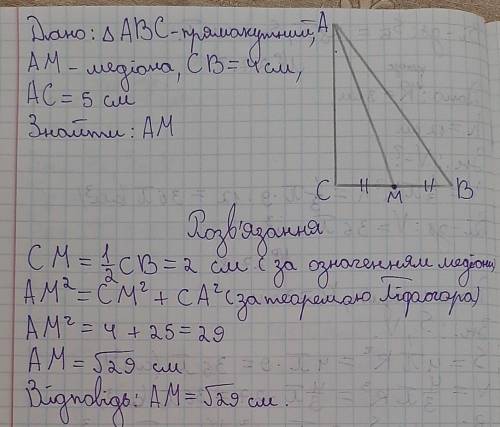 Дано: △ ABC - прямокутний, A
AM - медіана, CB = 4 см,
AC = 5 см
Знайти: AM
C M B
Розв'язання
CM = 1/2 CB = 2 см (за означенням медіани)
AM² = CM² + CA² (за теаремаю Піфагора)
AM² = 4 + 25 = 29
AM = √29 см
Відповідь: AM = √29 см.